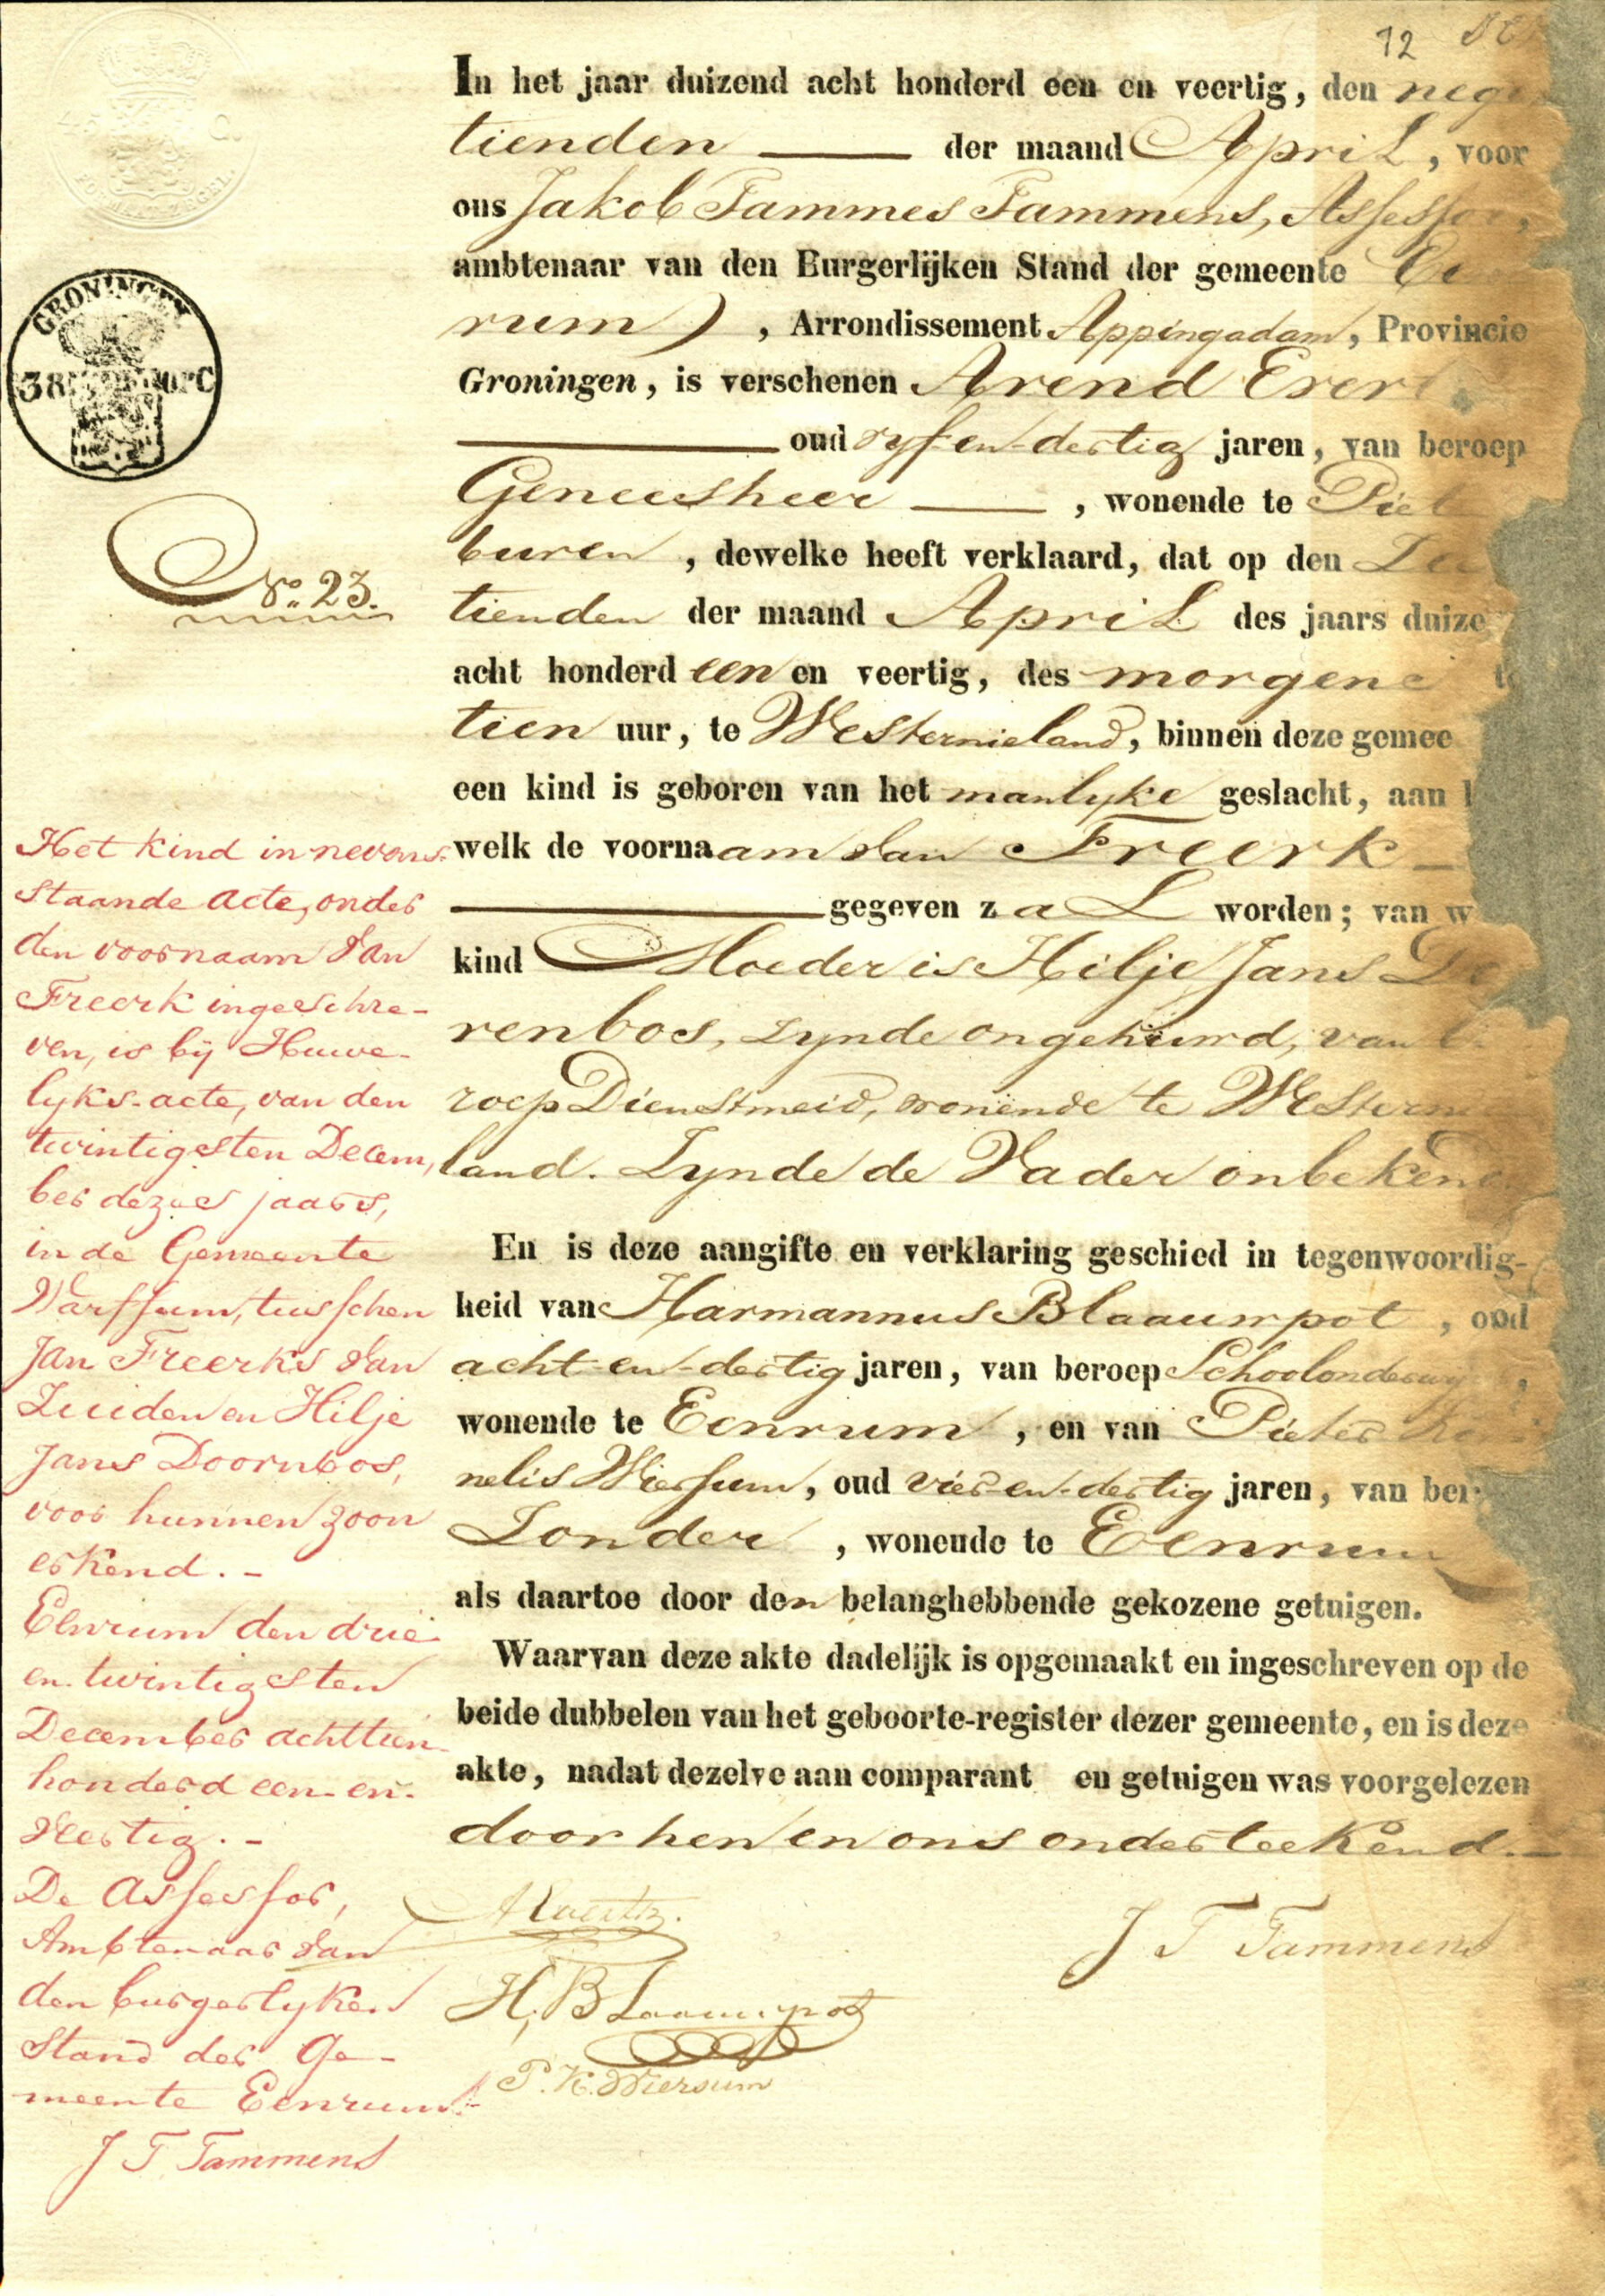 12
In het jaar duizend acht honderd een en veertig, den nege
tienden der maand April, voor
ons Jakob Tammes Tammens, Assessor,
ambtenaar van den Burgerlijken Stand der gemeente Ee
rum, Arrondissement Appingadam, Provincie
Groningen, is verschenen Arend Evert
oud vyf-en-dertig jaren, van beroep
Geneesheer, wonende te Piet
buren, dewelke heeft verklaard, dat op den
tienden der maand April des jaars duize
acht honderd een en veertig, des morgens te
tien uur, te Westernieland, binnen deze gemee
een kind is geboren van het manlyke geslacht, aan
welk de voornaam van Freerk
gegeven zal worden; van w
kind Moeder is Hilje Jans Do
renbos, zynde ongehuwd, van b
roep Dienstmeid, wonende te Westernie
land. Zynde de Vader onbekend
En is deze aangifte en verklaring geschied in tegenwoordig-
heid van Harmannus Blaauwpot, oud
acht-en-dertig jaren, van beroep Schoolonderwyzer,
wonende te Eenrum, en van Pieter Kor
nelis Wiersum, oud vier-en-dertig jaren, van ber
Zonder, wonende te Eenrum
als daartoe door den belanghebbende gekozene getuigen.
Waarvan deze akte dadelijk is opgemaakt en ingeschreven op de
beide dubbelen van het geboorte-register dezer gemeente, en is deze
akte, nadat dezelve aan comparant en getuigen was voorgelezen
door hen en ons onderteekend.-
J T Tammens
H. Blaauwpot
P. K. Wiersum
GRONINGEN
38
No. 23.
Het kind in nevens-
staande acte, onder
den voornaam van
Freerk ingeschre-
ven, is bij Huwe-
lyks-acte, van den
twintigsten Decem,
ber dezes jaars,
in de Gemeente
Warffum, tusschen
Jan Freerks van
Zuiden en Hilje
Jans Doornbos,
voor hunnen zoon
erkend.-
Eenrum den drie
en-twintigsten
December achttien-
honderd een-en-
veertig.-
De Assessor,
Ambtenaar van
den burgerlyken
Stand der Ge-
meente Eenrum.-
J T Tammens